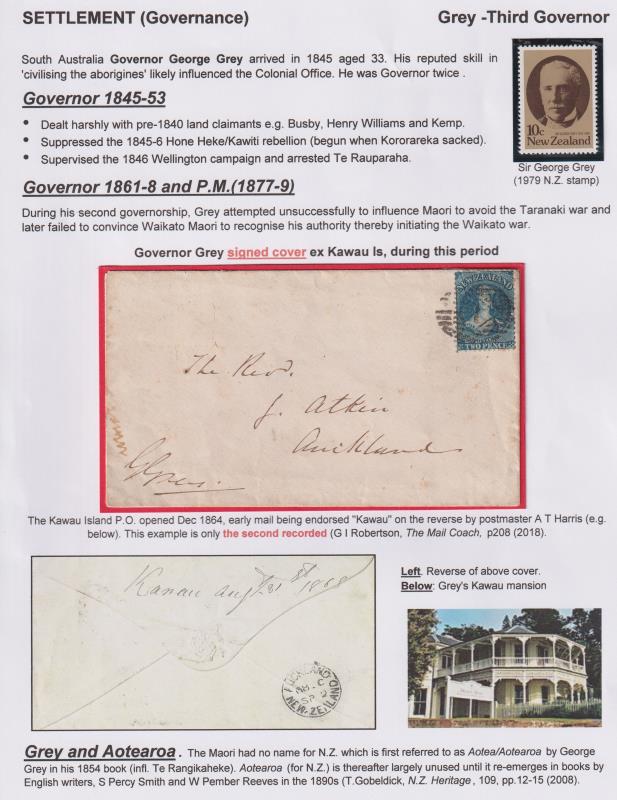 SETTLEMENT (Governance)
Grey -Third Governor
South Australia Governor George Grey arrived in 1845 aged 33. His reputed skill in
'civilising the aborigines' likely influenced the Colonial Office. He was Governor twice .
Governor 1845-53
• Dealt harshly with pre-1840 land claimants e.g. Busby, Henry Williams and Kemp.
• Suppressed the 1845-6 Hone Heke/Kawiti rebellion (begun when Kororareka sacked).
• Supervised the 1846 Wellington campaign and arrested Te Rauparaha.
10c
New Zealand
Sir George Grey
(1979 N.Z. stamp)
Governor 1861-8 and P.M.(1877-9)
During his second governorship, Grey attempted unsuccessfully to influence Maori to avoid the Taranaki war and
later failed to convince Waikato Maori to recognise his authority thereby initiating the Waikato war.
Governor Grey signed cover ex Kawau Is, during this period
NEW ZEALAND
TWO PENCE
The Revd.
J. Atkin
Auckland
G Grey
The Kawau Island P.O. opened Dec 1864, early mail being endorsed "Kawau" on the reverse by postmaster A T Harris (e.g.
below). This example is only the second recorded (G I Robertson, The Mail Coach, p208 (2018).
Kawau augt. 31st 1868
AUCKLAND
NEW-ZEALAND
Left. Reverse of above cover.
Below: Grey's Kawau mansion
Grey and Aotearoa . The Maori had no name for N.Z. which is first referred to as Aotea/Aotearoa by George
Grey in his 1854 book (infl. Te Rangikaheke). Aotearoa (for N.Z.) is thereafter largely unused until it re-emerges in books by
English writers, S Percy Smith and W Pember Reeves in the 1890s (T.Gobeldick, N.Z. Heritage, 109, pp.12-15 (2008).